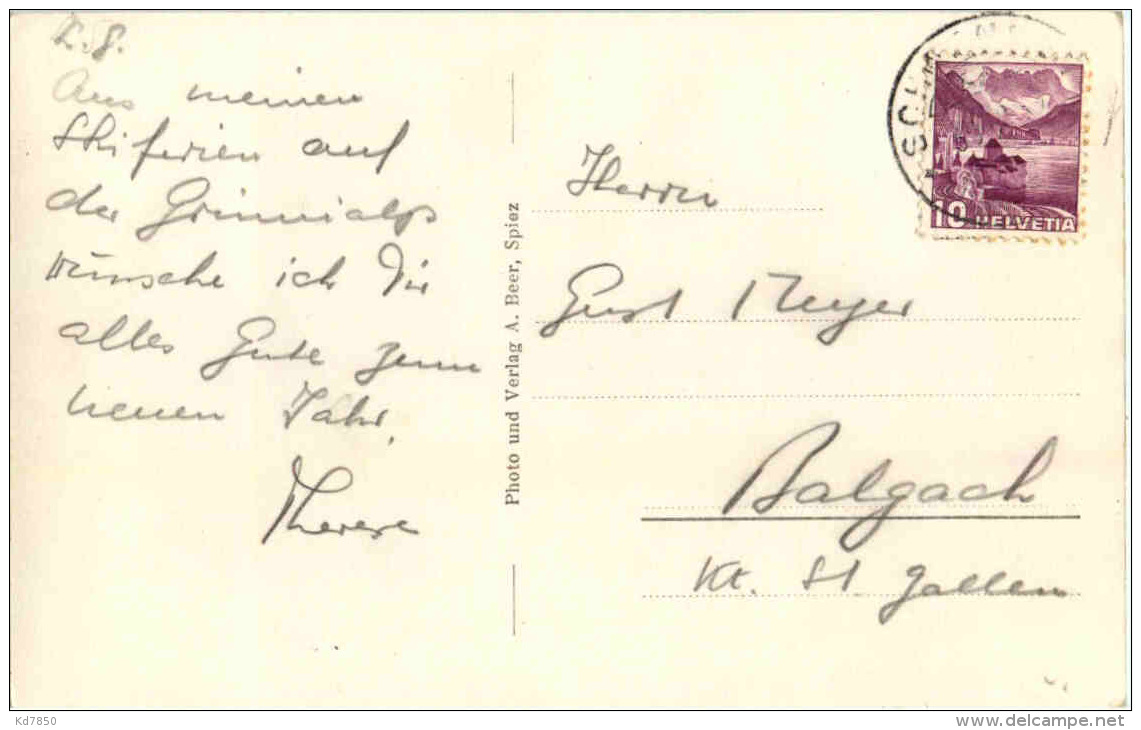 L. G.
Aus meinen
Skiferien auf
der Grimmialp
wünsche ich Dir
alles Gute zum
neuen Jahr,
Therese
Photo und Verlag A. Beer, Spiez
10 HELVETIA
Herrn
Gust Meyer
Balgach
Kt. St. Gallen
Kd7850
www.delcampe.net